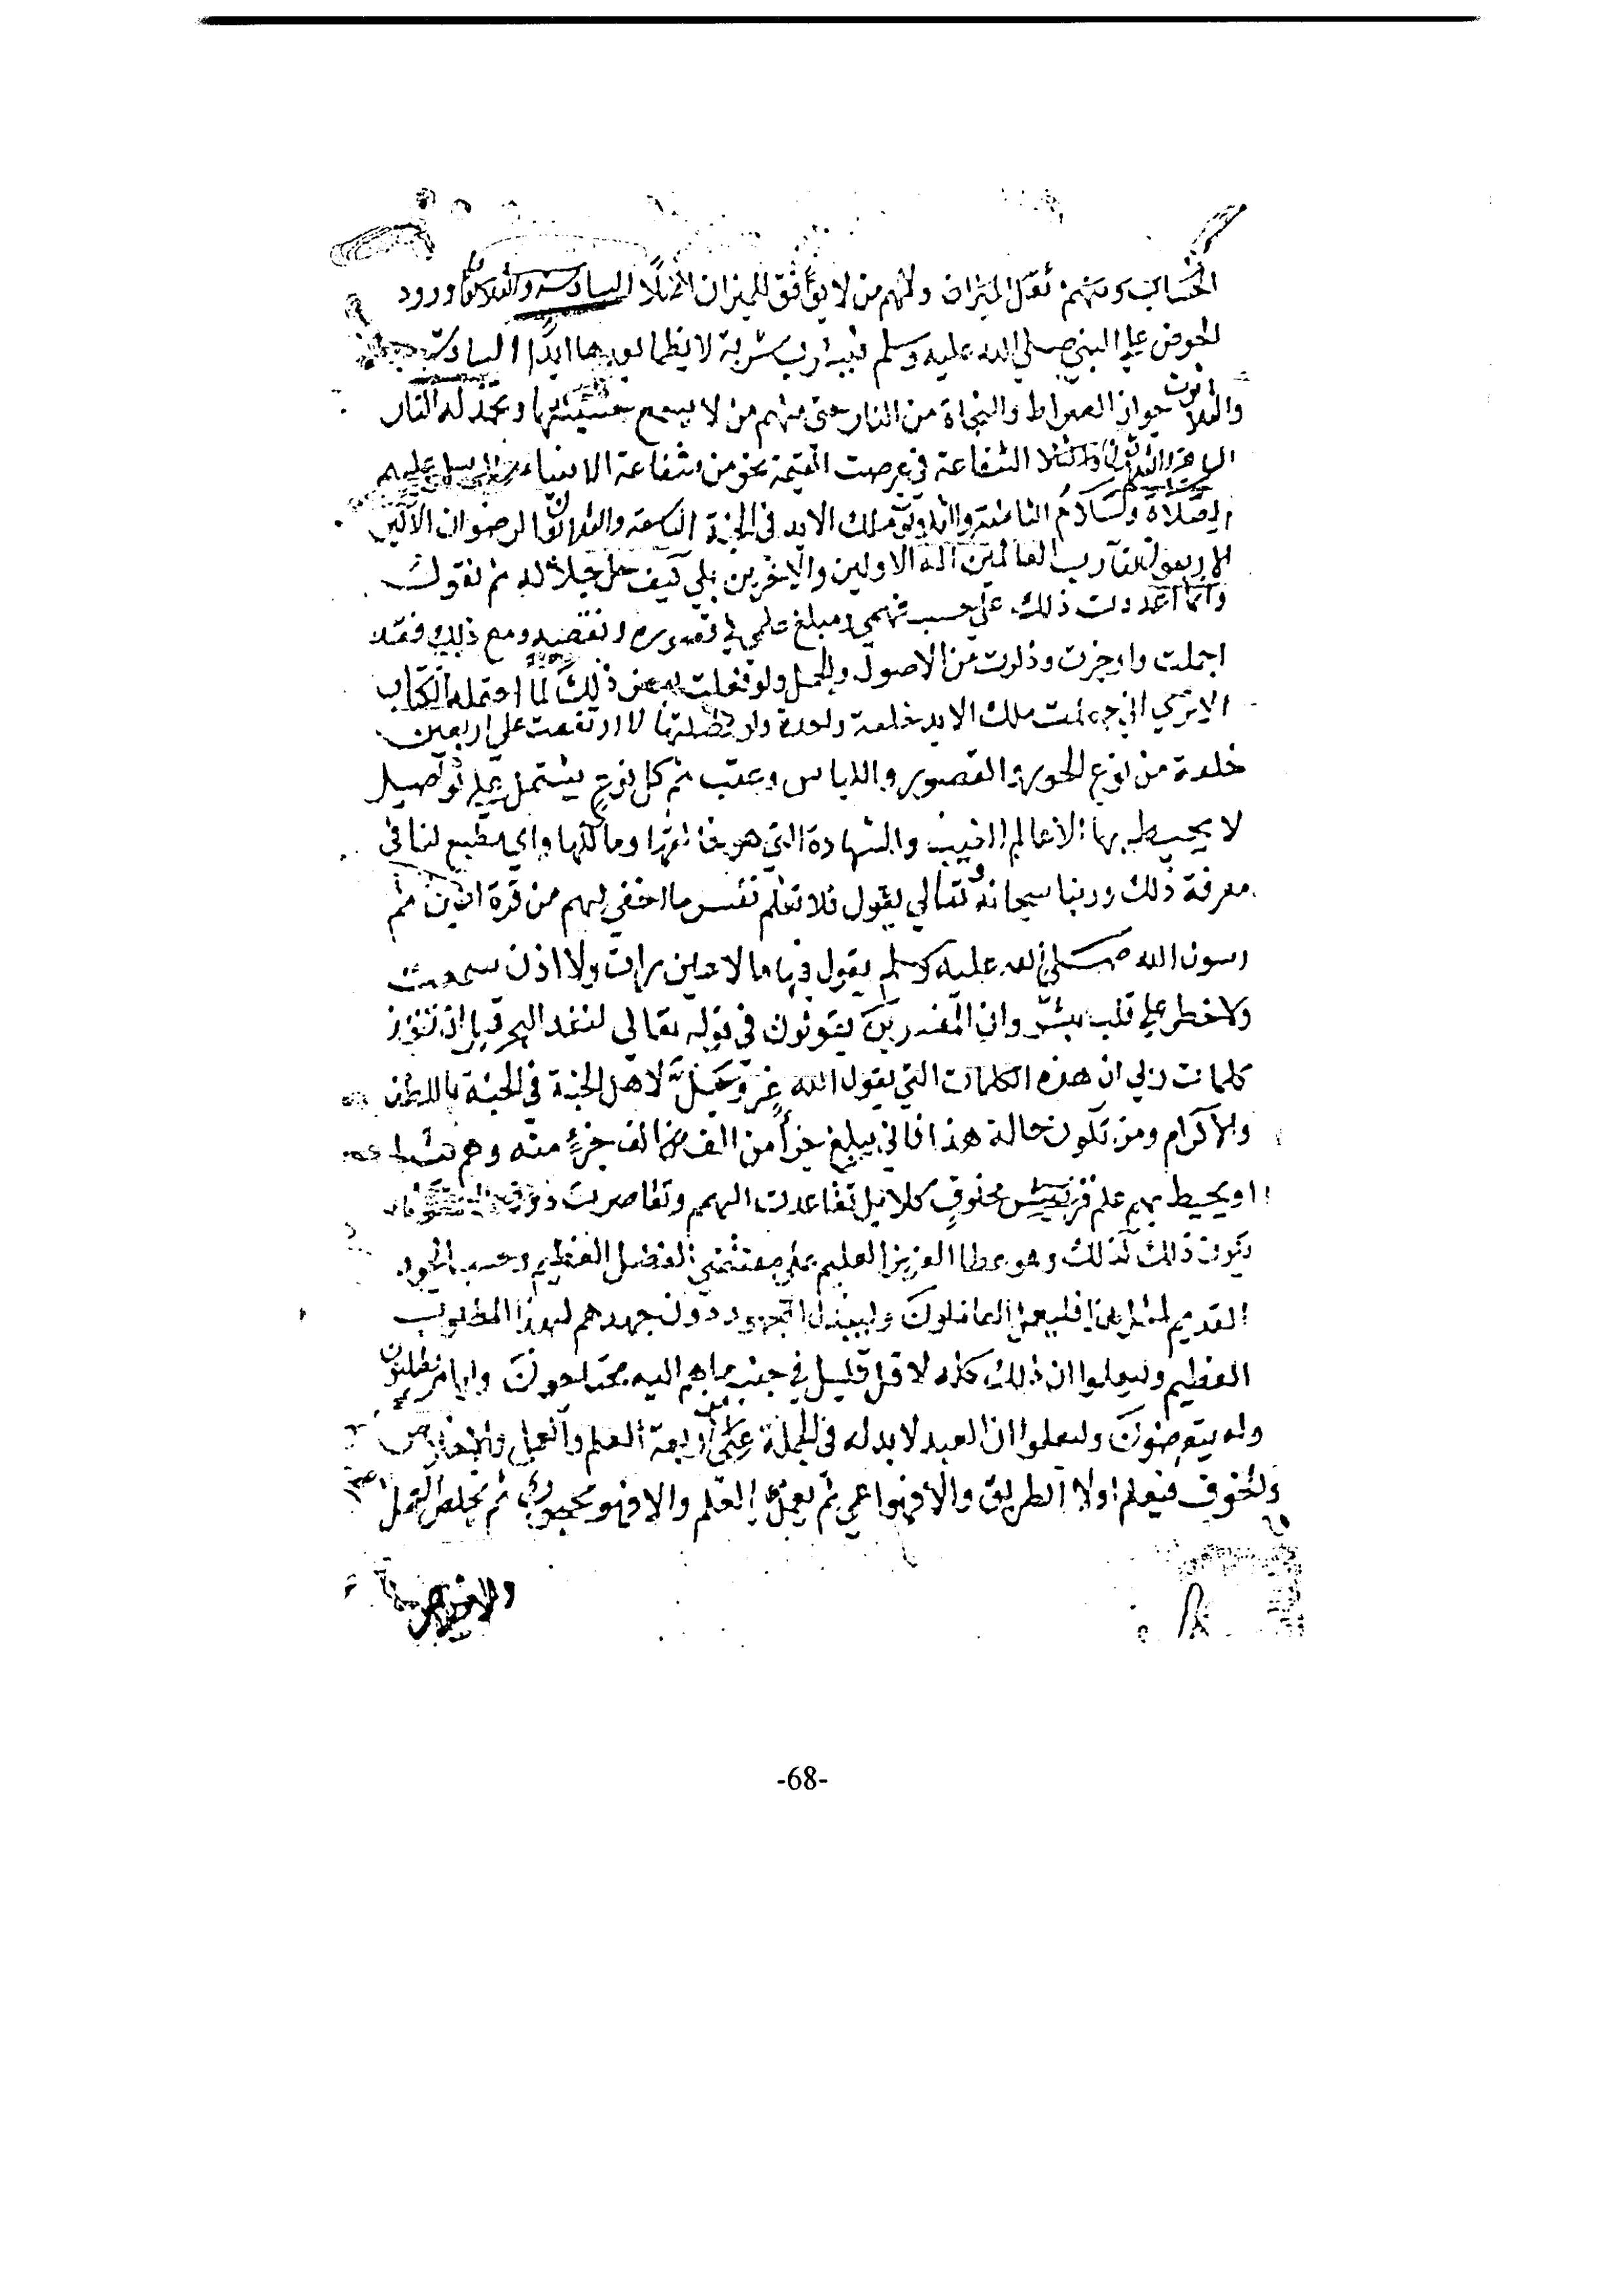 الحساب ومنهم ثقل الميزان ومنهم من لا يوافق للميزان اصلا السادسة والثلاثون ورود
الحوض علي النبي صلي الله عليه وسلم فيشرب شربة لا يظما بعدها ابدًا السابعة
والثلاثون جواز الصراط والنجاة من النار حتى منهم من لا يسمع حسيسها وتخمد له النار
الشفاعة في عرصت القيمة نحو من شفاعة الانبياء والرسل عليهم
الصلاة والسلام ملك الابد في الجنة التاسعة والثلاثون الرضوان الاكبر
الاربعون لقآ رب العالمين اله الاولين والاخرين بلي كيف جل جلاله ثم نقول
وانما اعددت ذلك علي حسب فهمي ومبلغ علمي في ومع ذلك فقد
اجملت واوجزت وذكرت من الاصول والجمل ولو فصلت بعض ذلك لما احتمله الكتاب
الا تري اني جعلت ملك الابد خلعة واحدة ولو فصلتها لارتفعت علي اربعين
خلعة من نوع الحور والقصور واللباس ثم كل نوع يشتمل علي تواصيل
لا يحيط بها الا عالم الغيب والشهادة التي هو خالقها ومالكها واي مطمع لنا في
معرفة ذلك وربنا سبحانه وتعالي يقول فلا تعلم نفس ما اخفي لهم من قرة اعين ثم
رسول الله صلي الله عليه وسلم يقول فيها ما لا عين رات ولا اذن سمعت
ولا خطر علي قلب بشر وان المفسرين يقولون في قوله تعالي لنفد البحر قبل ان تنفد
كلمات ربي ان هذه الكلمات التي يقول الله عز وجل لاهل الجنة في الجنة باللطف
والاكرام ومن تكون حالة هذا فاني يبلغ جزأ من الف الف جزءٍ منه وهم
او يحيط بهم علم مخلوق كلا بل تقاعدت الهمم وتقاصرت دونه
يكون ذلك كذلك وهو عطا العزيز العليم علي مقتضي الفضل العظيم وحسب الجود
القديم لمثل هذا فليعمل العاملون وليبذل المجهود دون جهدهم لهذا المطلوب
العظيم وليعلموا ان ذلك كله لاقل قليل في جنب ما هم اليه محتاجون واياه يطلبون
وله يتعرضون وليعلموا ان العبد لا بد له في الجملة من اربعة العلم والعمل والاخلاص
والخوف فيعلم اولا الطريق والا فهو اعمي ثم يعمل بالعلم والا فهو محجوب ثم يخلص العمل
-68-